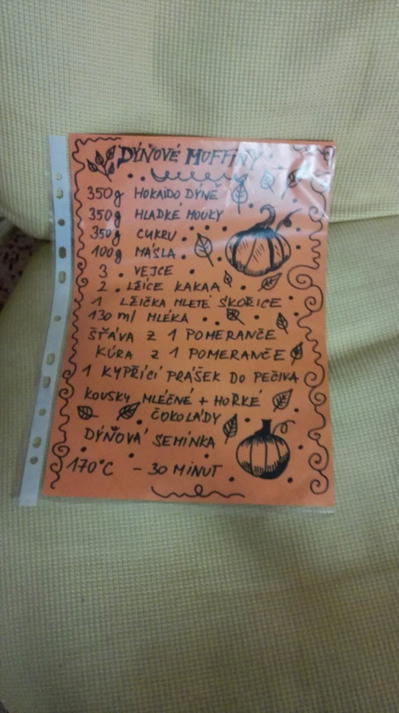 DÝŇOVÉ MUFFINY
350g HOKAIDO DÝNĚ
350g HLADKÉ MOUKY
350g CUKRU
100g MÁSLA
3 VEJCE
2 LŽÍCE KAKAA
1 LŽIČKA MLETÉ SKOŘICE
130 ml MLÉKA
ŠŤÁVA Z 1 POMERANČE
KŮRA Z 1 POMERANČE
1 KYPŘÍCÍ PRÁŠEK DO PEČIVA
KOUSKY MLÉČNÉ + HOŘKÉ
ČOKOLÁDY
DÝŇOVÁ SEMÍNKA
170°C - 30 MINUT